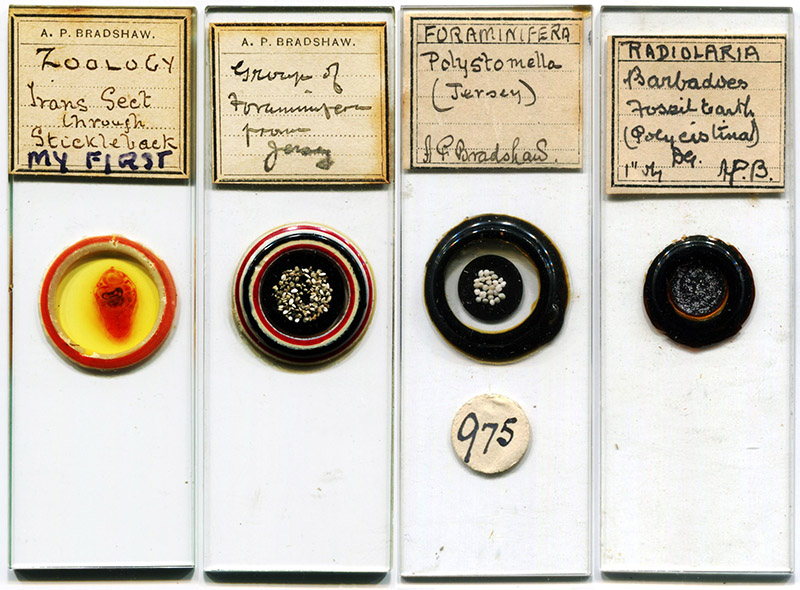 A. P. BRADSHAW.
ZOOLOGY
Trans Sect
through
Stickleback
MY FIRST
A. P. BRADSHAW.
Group of
Foraminifera
from
Jersey
FORAMINIFERA
Polystomella
(Jersey)
A P Bradshaw.
975
RADIOLARIA
Barbadoes
Fossil Earth
(Polycistina)
1"
A.P.B.